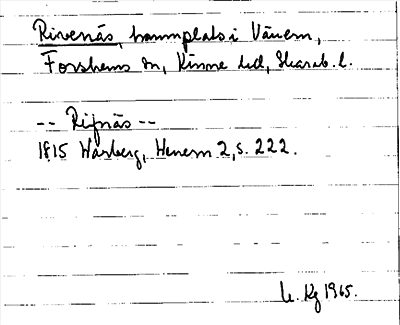 Rivenäs, hamnplats i Vänern,
Forshems sn, Kinne hd, Skarab. l.
-- Rifnäs --
1815 Warberg, Henern 2, s. 222.
Kg 1965.